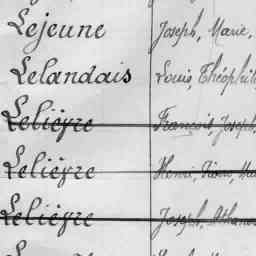 Lejeune Joseph, Marie,
Lelandais Louis, Théophile
Lelièvre François, Joseph,
Lelièvre Henri,
Lelièvre Joseph,